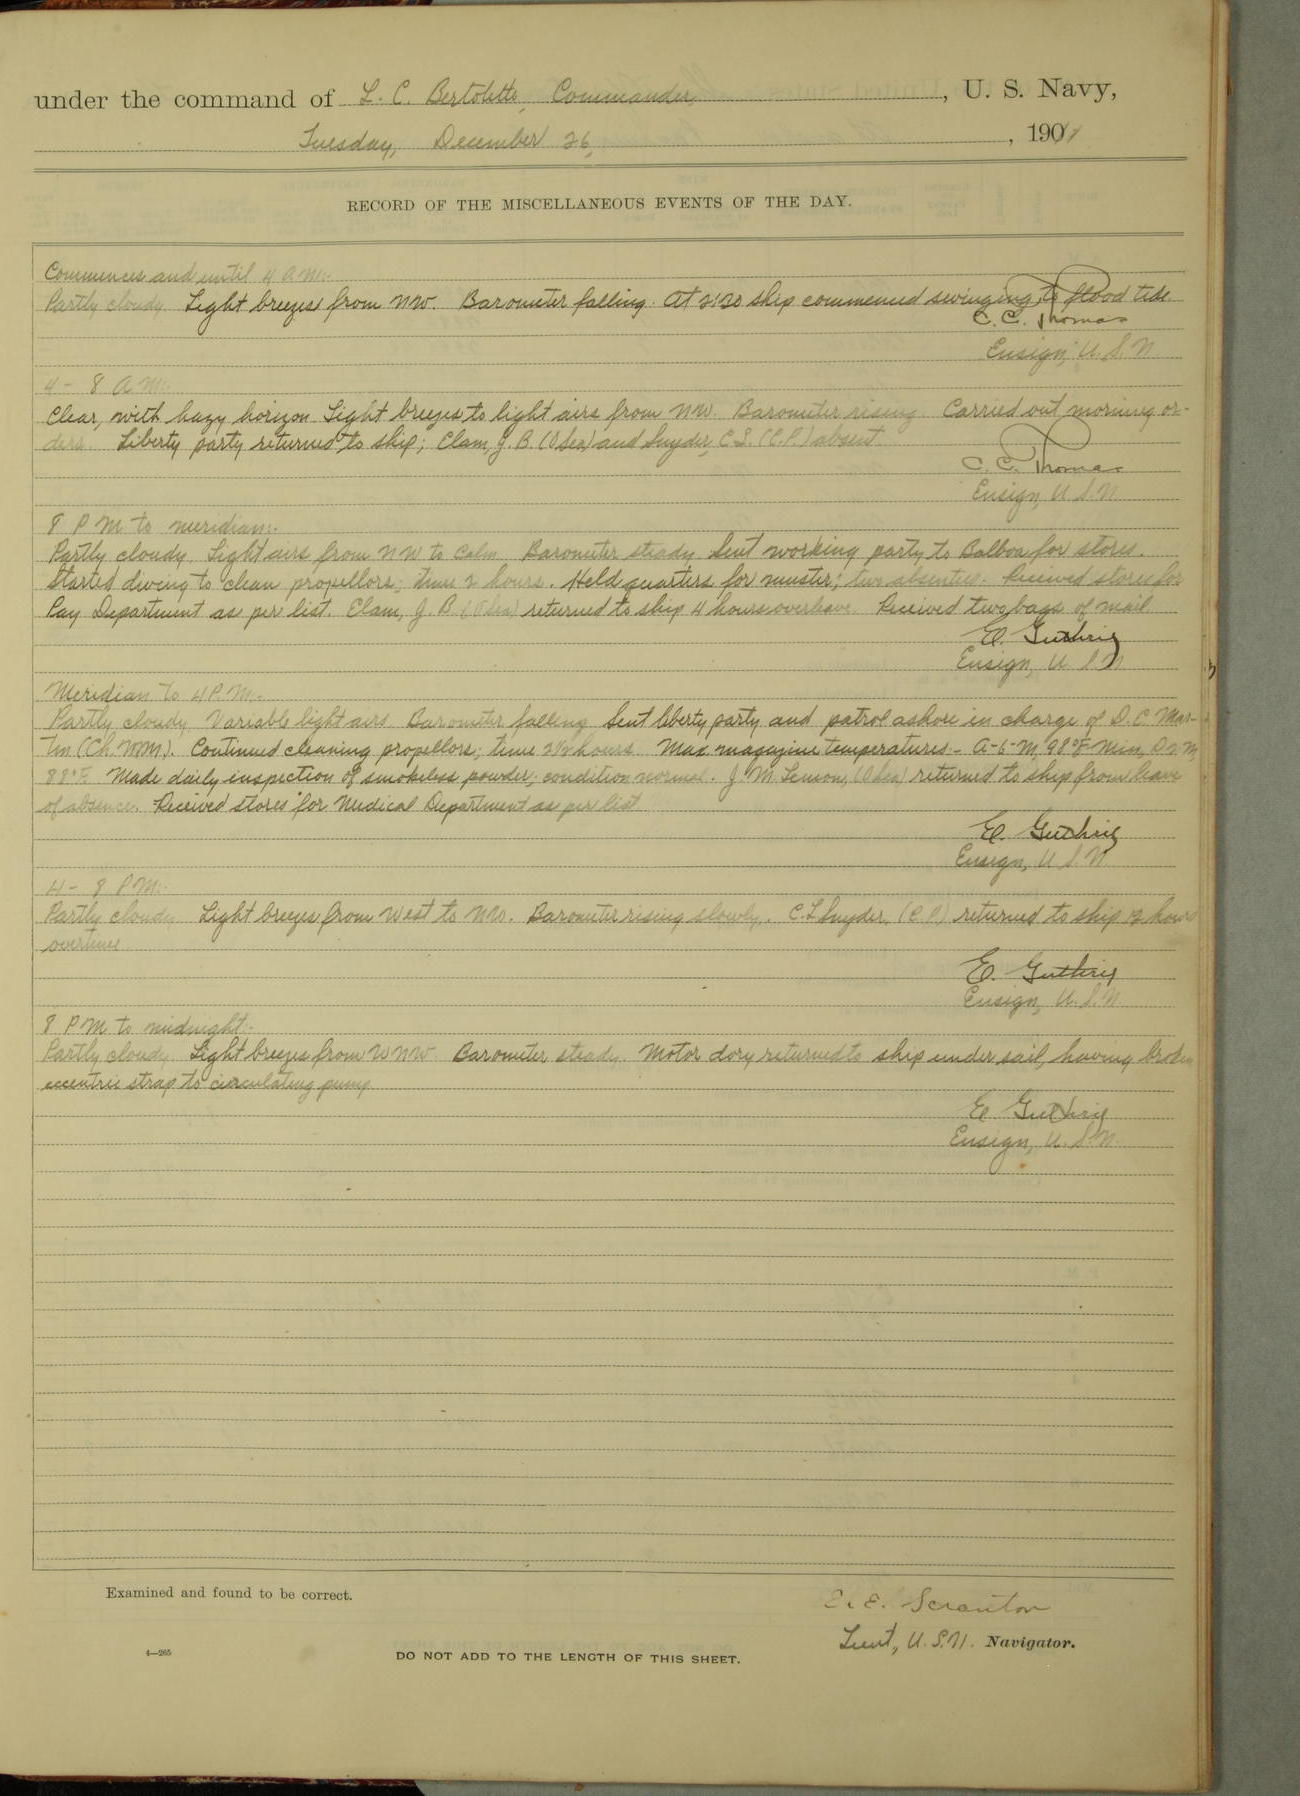 under the command of L. C. Bertolette, Commander, U. S. Navy,
Tuesday, December 26, 1911
RECORD OF THE MISCELLANEOUS EVENTS OF THE DAY.
Commences and until 4 A.M:-
Partly cloudy. Light breezes from NW. Barometer falling. At 2:20 ship commenced swinging to flood tide
C. C. Thomas
Ensign, U. S. N.
4 - 8 A M:-
Clear, with hazy horizon. Light breezes to light airs from NW. Barometer rising. Carried out morning or-
ders. Liberty party returned to ship; Elam, J. B. (O Sea) and Snyder, C. L. (C.P.) absent.
C. C. Thomas
Ensign, U. S. N.
8 P M to meridian:-
Partly cloudy. Light airs from NW to Calm. Barometer steady. Sent working party to Balboa for stores.
Started diving to clean propellors; time 2 hours. Held quarters for muster; two absentees. Received stores for
Pay Department as per list. Elam, J. B. (O Sea) returned to ship 4 hours overleave. Received two bags of mail.
E. Guthrie
Ensign, U. S. N
Meridian to 4 P. M:-
Partly cloudy. Variable light airs. Barometer falling. Sent liberty party and patrol ashore in charge of D. C. Mar-
tin (Ch. M.M.). Continued cleaning propellors; time 2½ hours. Max magazine temperatures - A-6-M, 98°F Min,
88°F. Made daily inspection of smokeless powder; condition normal. J. M. Lemon, (O Sea) returned to ship from leave
of absence. Received stores for Medical Department as per list
E. Guthrie
Ensign, U. S. N.
4 - 8 P M:-
Partly cloudy. Light breezes from West to NW. Barometer rising slowly. C. L. Snyder, (C.P.) returned to ship hours
overtime.
E. Guthrie
Ensign, U. S. N.
8 P M to midnight:-
Partly cloudy. Light breezes from WNW. Barometer steady. Motor dory returned to ship under sail, having broken
eccentric strap to circulating pump
E. Guthrie
Ensign, U. S. N.
Examined and found to be correct.
E. E. Scranton
Lieut, U. S. N. Navigator.
4—265
DO NOT ADD TO THE LENGTH OF THIS SHEET.